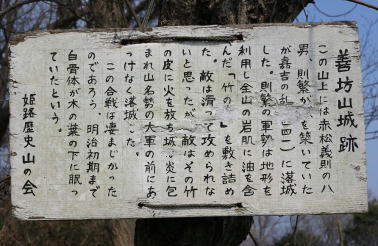 善坊山城跡
この山上には赤松義則の八
男、則繁が　を築いていた
が嘉吉の乱(　四　)に落城
した。則繁の軍勢は地形を
利用し全山の岩肌に油を含
んだ「竹の　」を敷き詰め
た。敵は滑って攻められな
いと思ったが、敵はその竹
の皮に火を放ち城は炎に包
まれ山名勢の大軍の前にあ
っけなく落城した。
この合戦は凄まじかった
のであろう、明治初期まで
白骨体が木の葉の下に眠っ
ていたという。
姫路歴史山の会